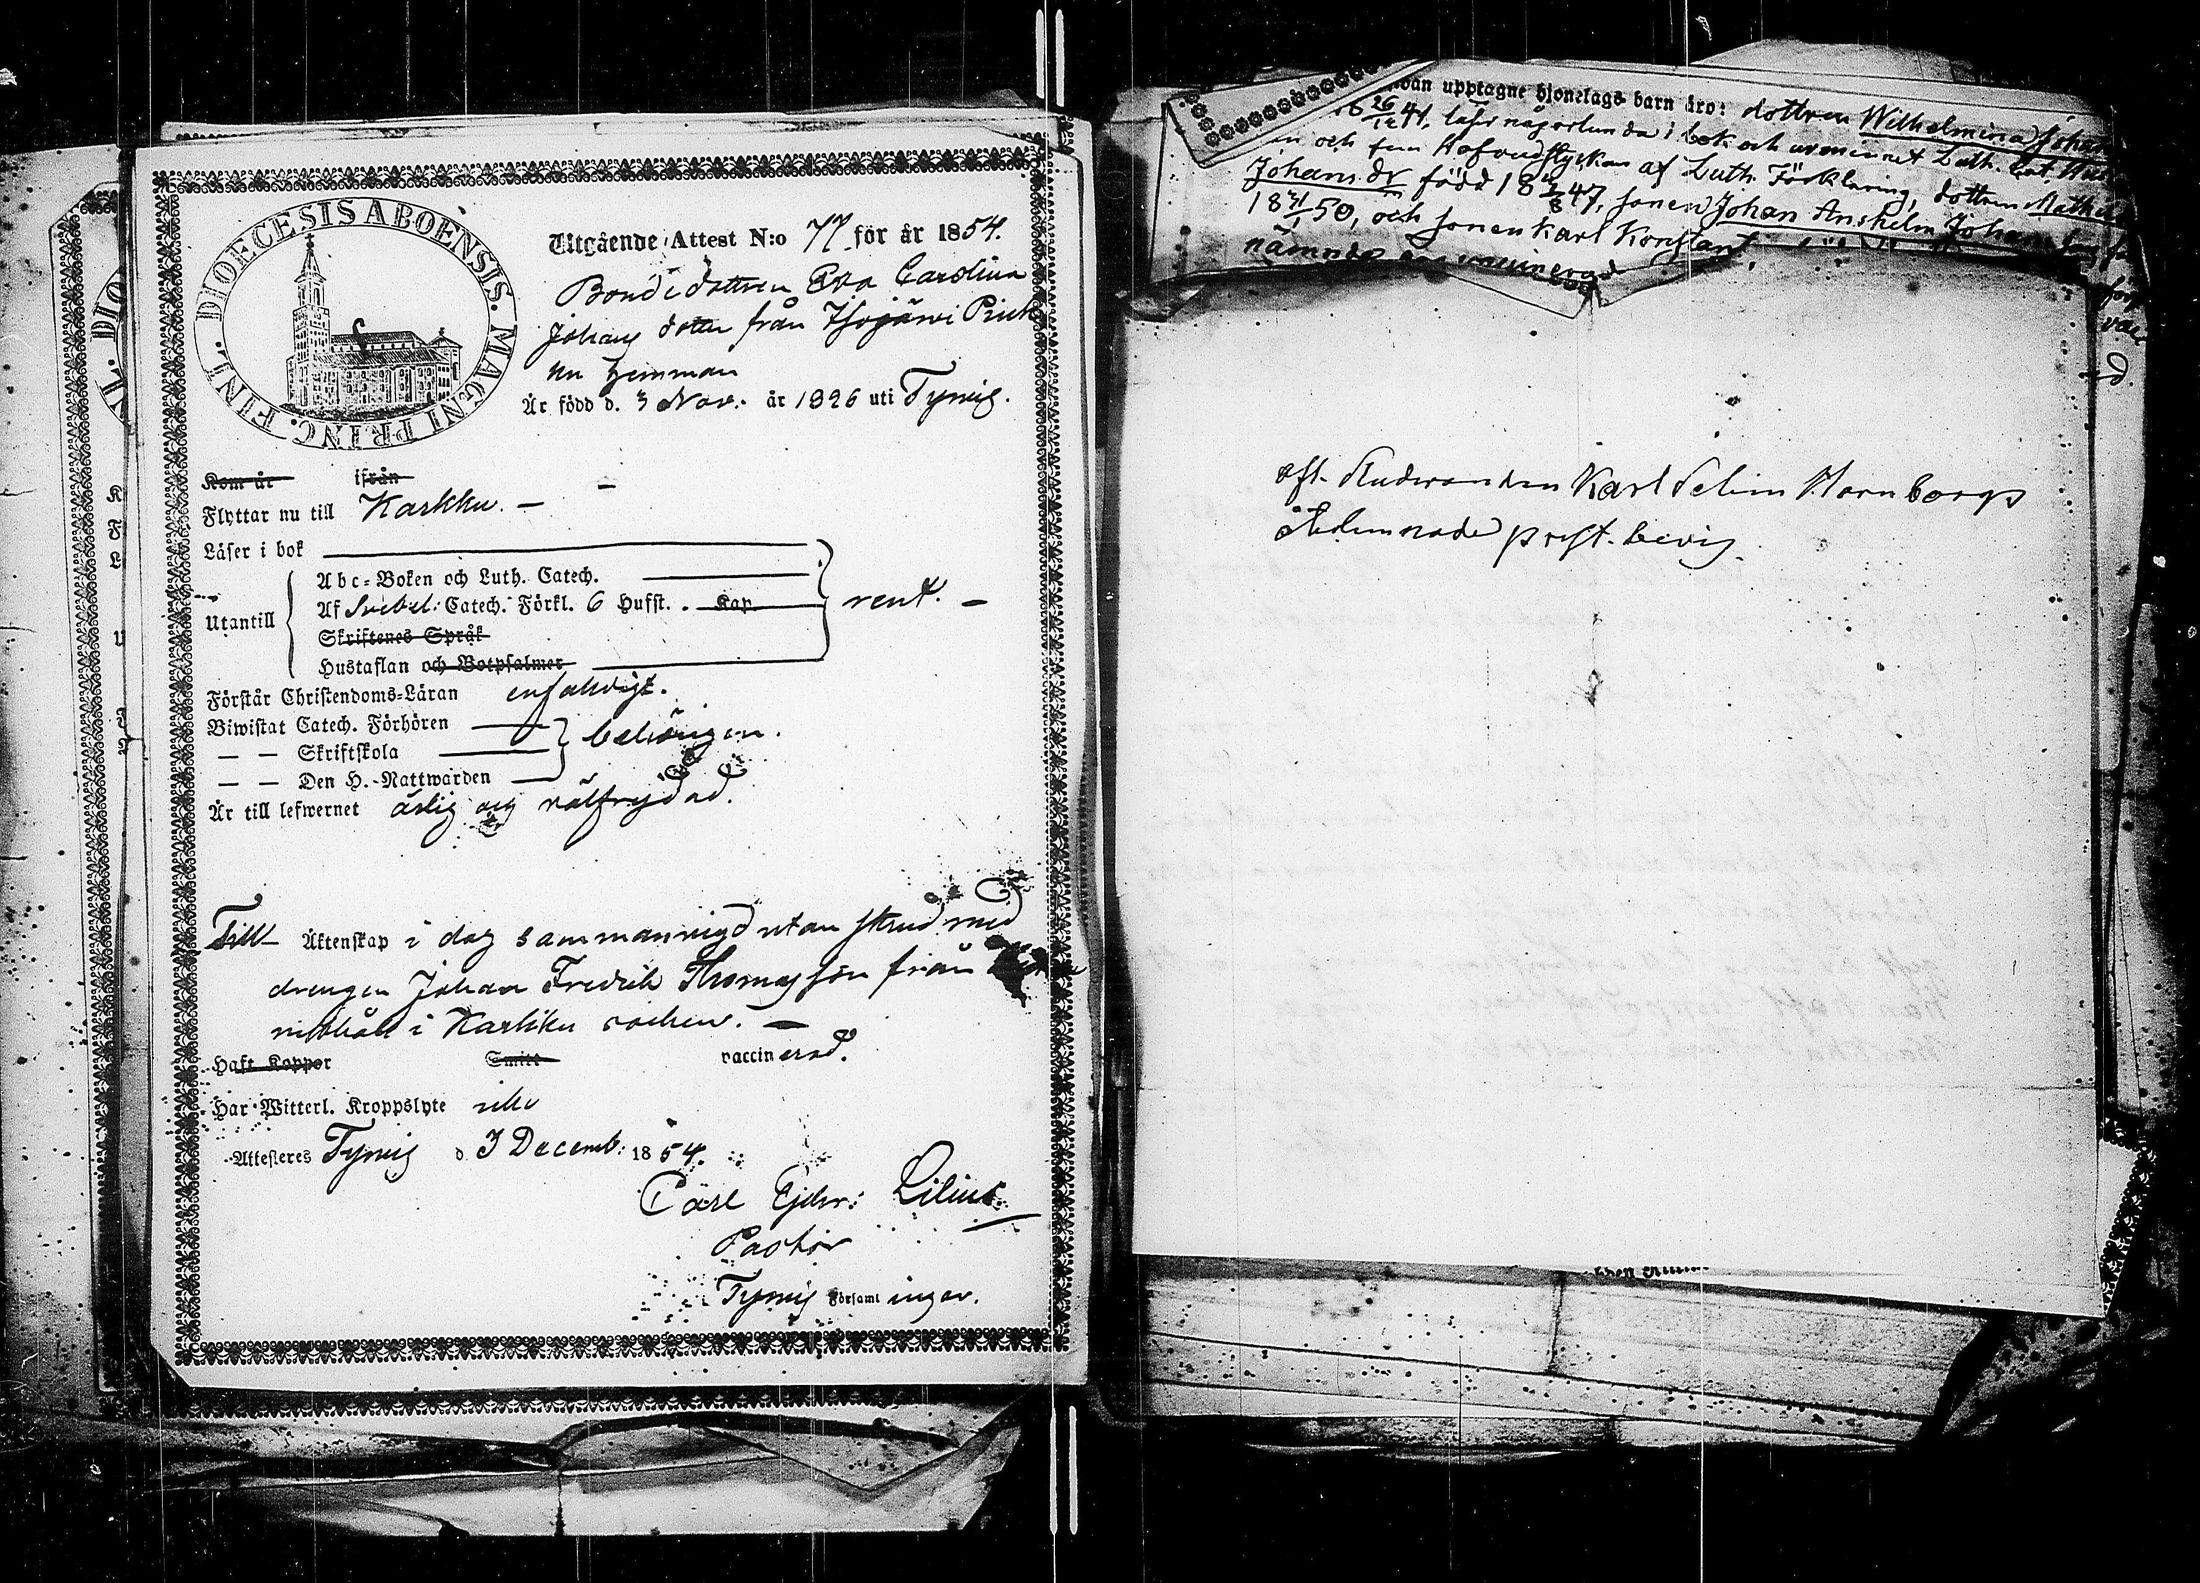 DIOECESIS ABOENSIS. MAGNI PRINC. FINL.
Utgående Attest N:o 77 för år 1854.
Bondedottren Eva Carolina
Johans dotter från
hemman
Är född d. 3 Nov: år 1826 uti Tyrvis.
Kom år ifrån
Flyttar nu till Karkku. –
Läser i bok
Abc-Boken och Luth. Catech.
Utantill
Af Svebel: Catech. Förkl. 6 Hufst. Kap.
rent. –
Skriftenes Språk
Hustaflan och Botpsalmer
Förstår Christendoms-Läran enfaldigt.
Biwistat Catech. Förhören
— — Skriftskola
behörigen.
— — Den H. Nattwarden
Är till lefwernet ärlig och välfrejdad.
Till Äktenskap i dag sammanvigd utan skrud med
drengen Johan Fredrik Thomasson från
i Karkku socken. –
Haft Koppor Smitt vaccinerad.
Har Witterl. Kroppslyte icke
Attesteres Tyrvis d. 3 Decemb: 1854.
Carl Ejdr: Lilius
Pastor
Tyrvis Församlingar.
upptagne hjonelags barn äro: dottren Wilhelmina Johans
26/12 41, läser någorlunda i bok och urminnet Luth. Cat.
och fem Hofvudstycken af Luth. Förklaring, dottren Mathilda
Johans dr född 18 /8 47, sonen Johan Anshelm Johans son
18 /50, och sonen Karl Konstant
Studeranden Karl Selim Hornborgs
prest. bevis.